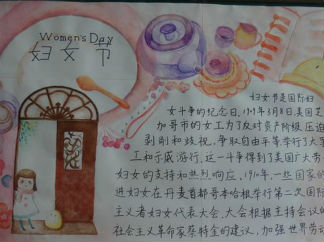 Women's Day
妇女节
妇女节是国际妇
女斗争的纪念日,1909年3月8日美国芝
加哥市的女工为了反对资产阶级压迫
剥削和歧视,争取自由平等举行了大罢
工和示威游行,这一斗争得到了美国广大劳
妇女的支持和热烈响应,1910年,一些国家的
进妇女在丹麦首都哥本哈根举行第二次国际
主义者妇女代表大会,大会根据主持会议的
社会主义革命家蔡特金的建议,加强世界劳动